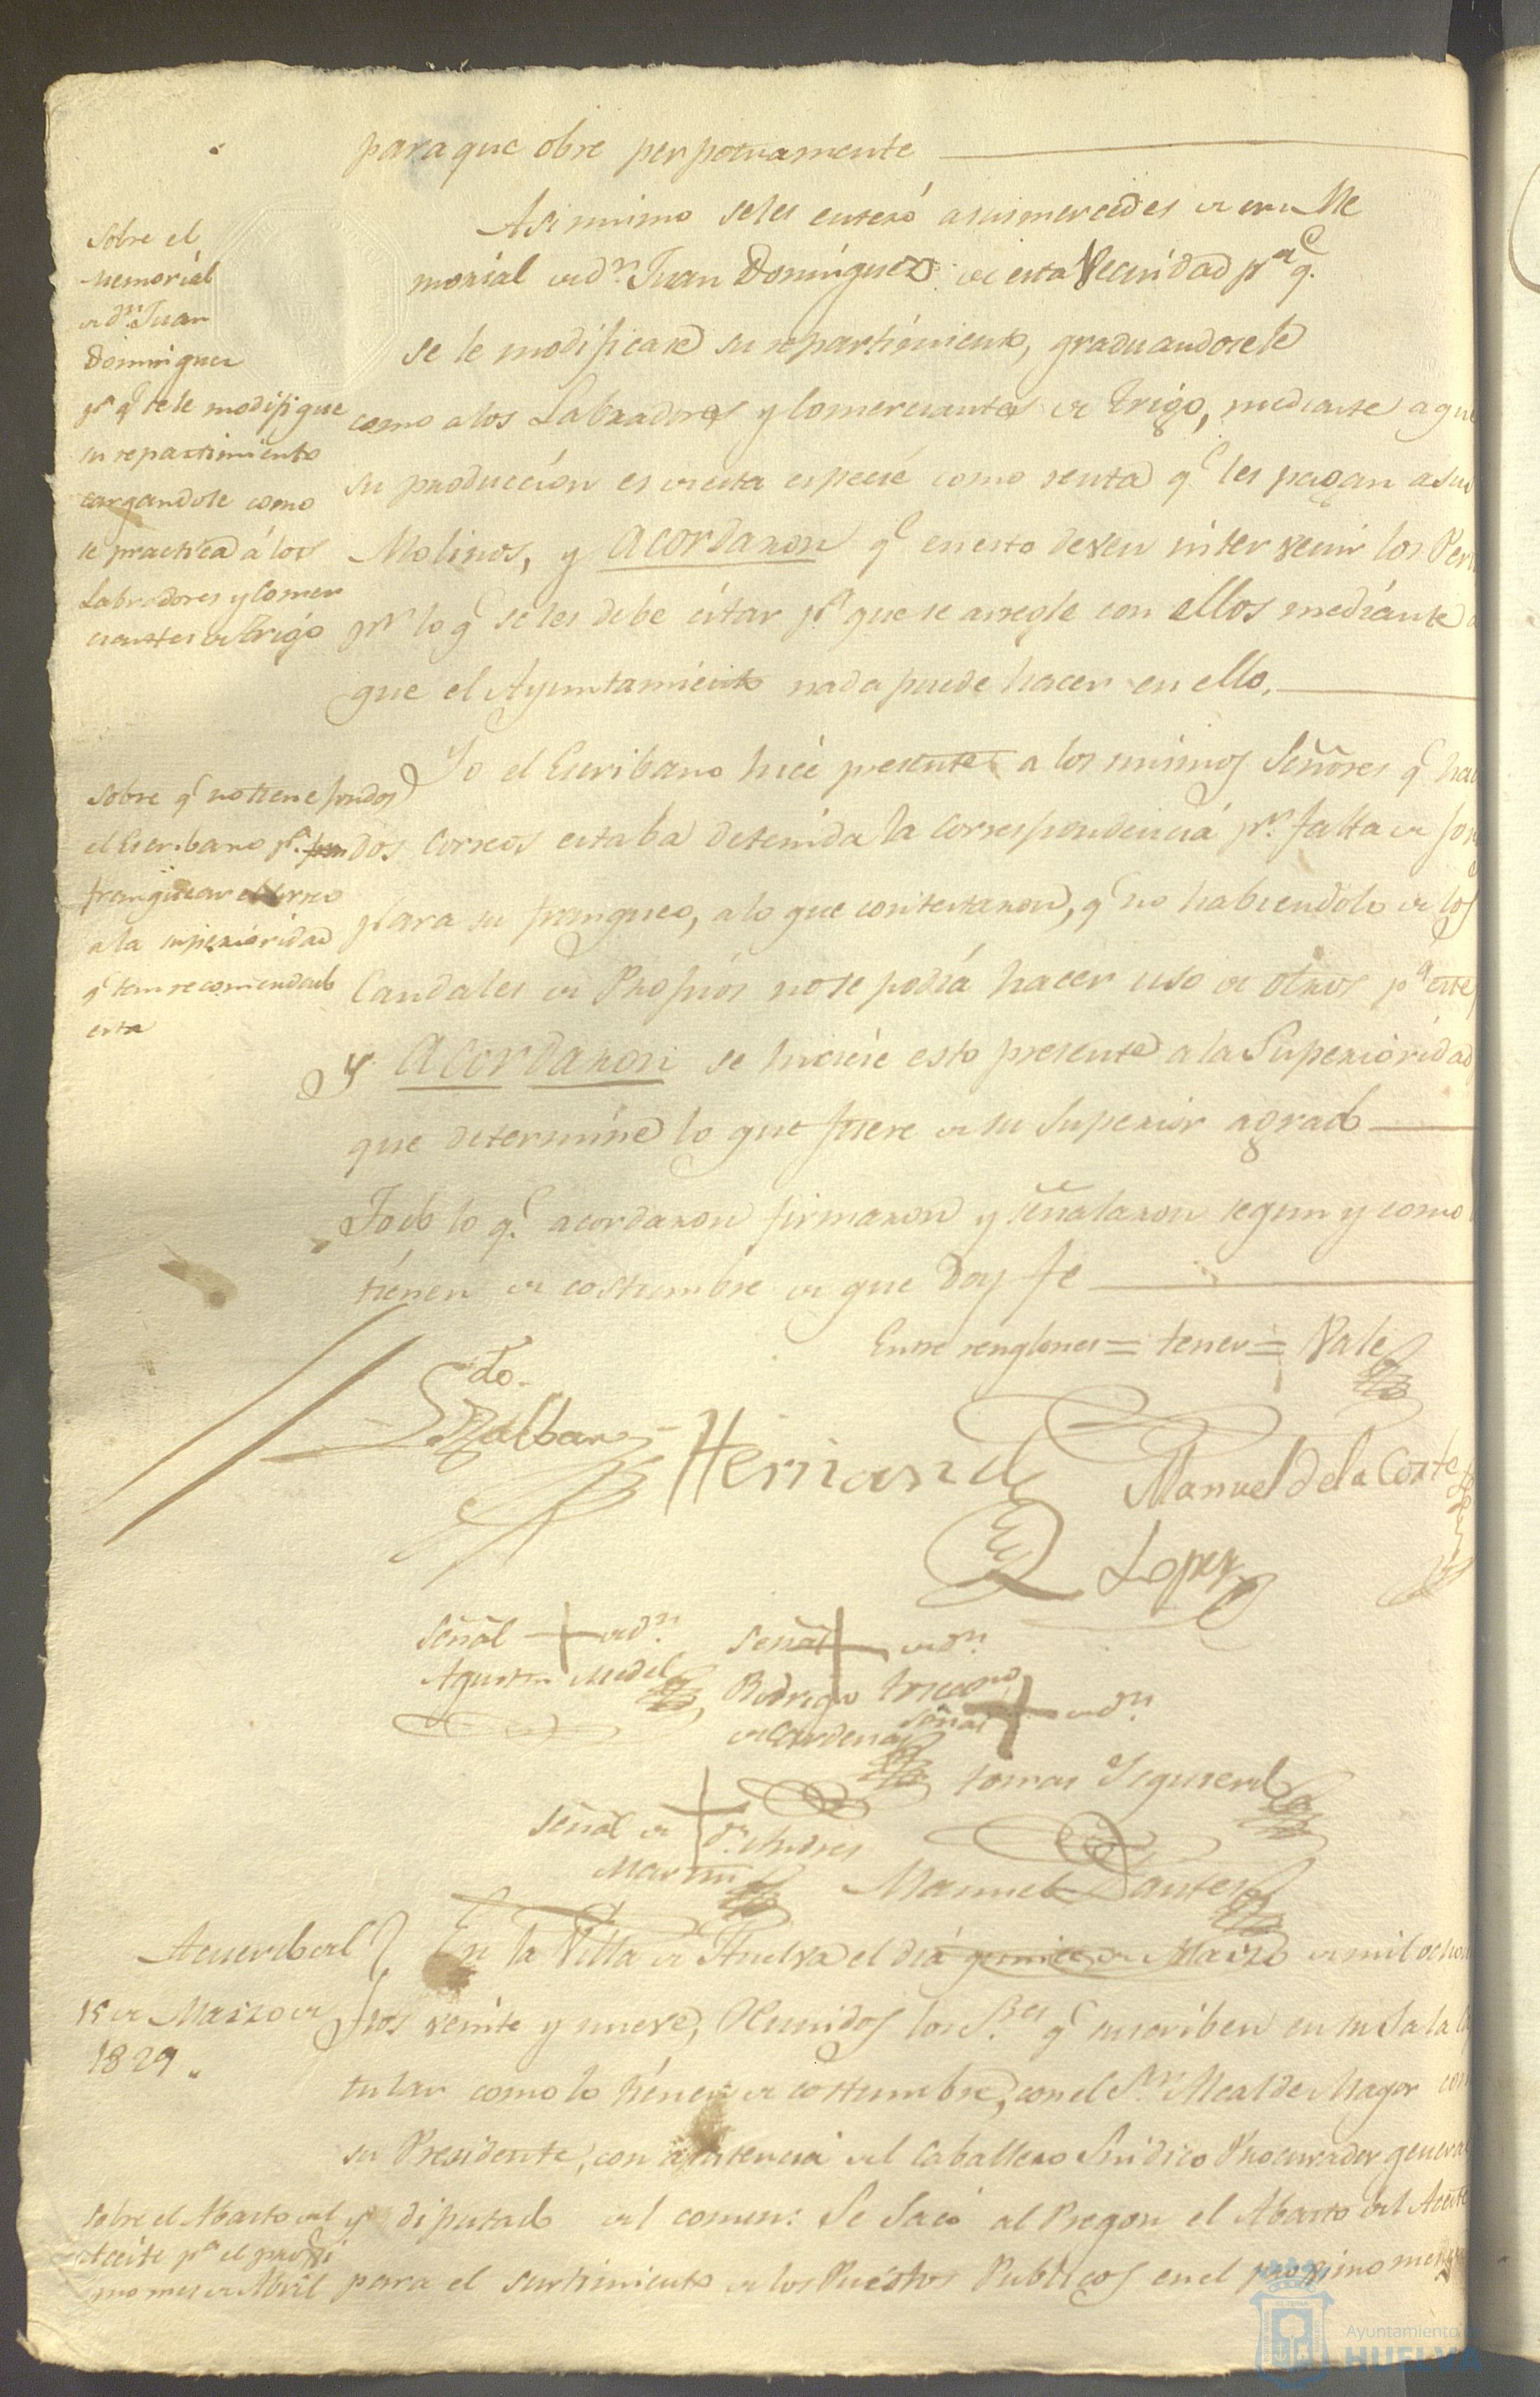 para que obre perpetuamente
Sobre el
Memorial
de dn. Juan
Dominguez
pa. qe. se le modifique
su repartimiento
cargandole como
se practica á los
Labradores y Comer
ciantes de Trigo
Asi mismo se les enteró a sus mercedes de un Me
morial de dn. Juan Dominguez de esta Vecindad pa. qe.
se le modificase su repartimiento, graduandosele
como a los Labradores y Comerciantes de Trigo, mediante a que
su producción es de esta especie como renta qe. les pagan a sus
Molinos, y Acordaron qe. en esto deven intervenir los
pr. lo qe. se les debe citar pa. que se arregle con ellos mediante a
que el Ayuntamiento nada puede hacer en ello.
Sobre qe. no tiene fondos
el Escribano pa.
franquear el correo
a la superioridad
qe. tiene recomendada
esta
Yo el Escribano hice presente a los mismos Señores qe. hac
dos Correos estaba detenida la correspondencia pr. falta de
para su franqueo, a lo que contestaron, qe. no habiendolo de los
Caudales de Propios no se podia hacer uso de otros pa. este
y Acordaron se hiciese esto presente a la Superioridad
que determine lo que fuere de su superior agrado
Todo lo qe. acordaron firmaron y señalaron segun y como
tienen de costumbre de que Doy fe
Entre renglones = tener = Vale
Hernand
Manuel de la Corte
Lopez
Señal + de dn.
Agustin Medel
Señal + de dn.
Rodrigo
de Cardenas
Señal + de dn.
Tomas Ysquierdo
Señal de + dn. Andres
Martin
Manuel
Acuerdo del
15 de Marzo de
1829.
En la Villa de Huelva el dia quince de Marzo de mil ochoc
tos veinte y nueve, Reunidos los Sres. qe. suscriben en su Sala Ca
tular como lo tienen de costumbre, con el Sr. Alcalde Mayor con
su Presidente, con asistencia del Caballero Sindico Procurador general
Sobre el Abasto del
Aceite pa. el proxi
mo mes de Abril
y diputado del comun: Se Sacó al Pregon el Abasto del Aceite
para el surtimiento de los Puestos Publicos en el proximo mes
Ayuntamiento de
HUELVA